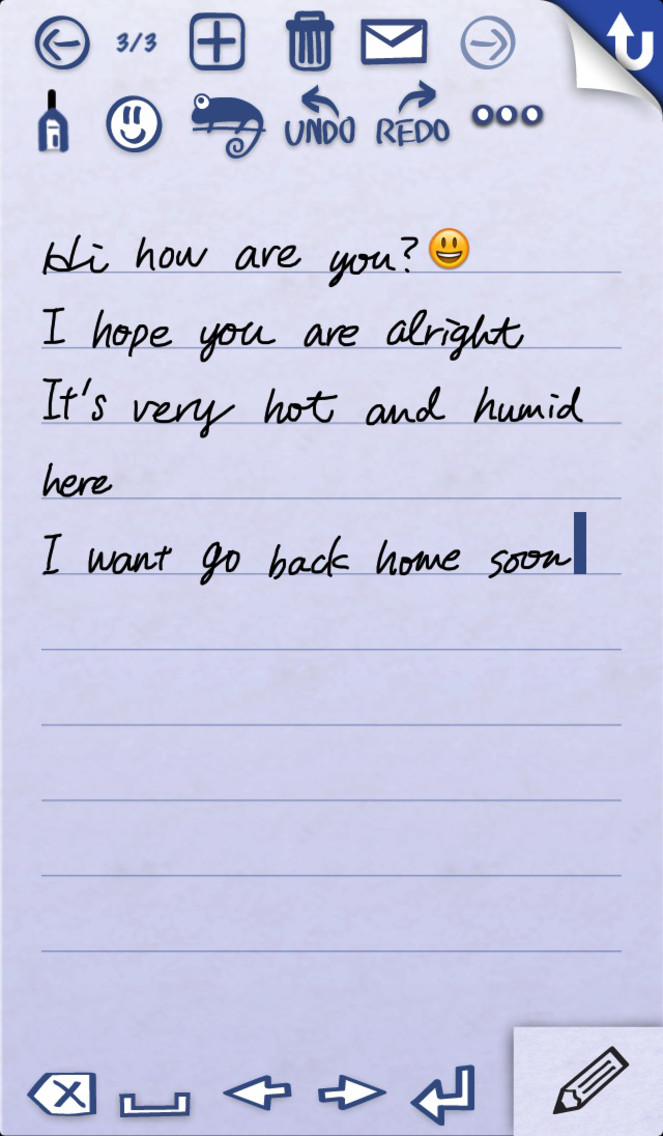 3/3
UNDO REDO
Hi how are you?😃
I hope you are alright
It's very hot and humid
here
I want go back home soon